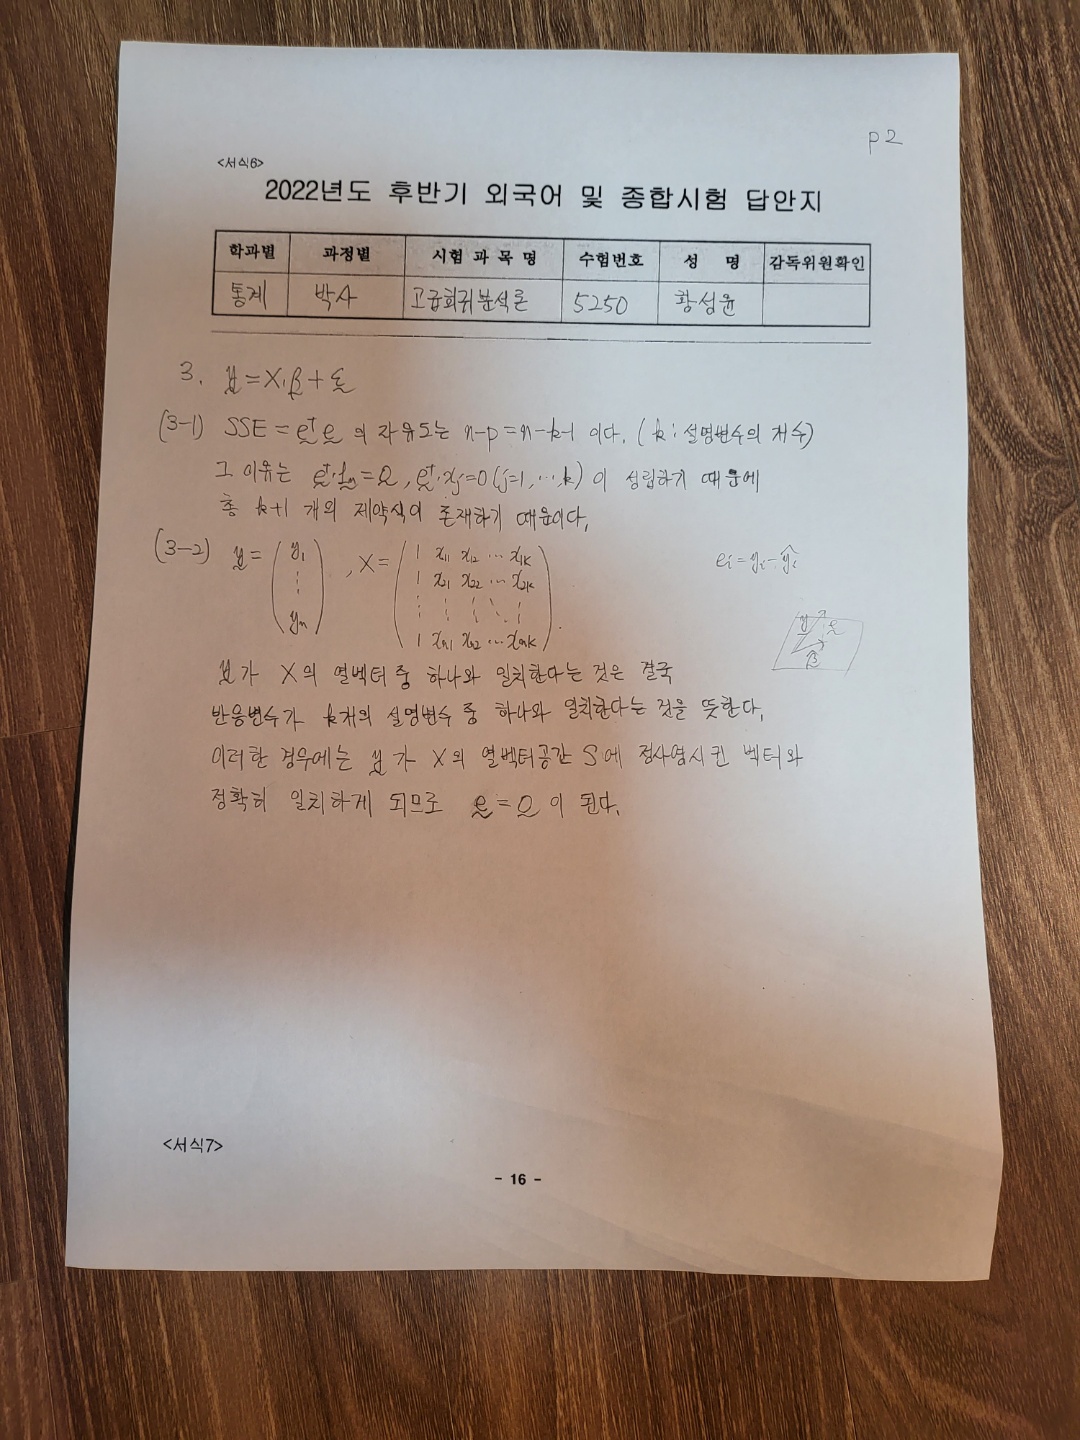 p2
<서식6>
2022년도 후반기 외국어 및 종합시험 답안지
학과별 과정별 시험 과 목 명 수험번호 성 명 감독위원확인
통계 박사 고급회귀분석론 5250 황성윤
3. y = Xβ + ε
(3-1) SSE = eᵗe 의 자유도는 n-p = n-k-1 이다. (k : 설명변수의 개수)
그 이유는 eᵗ·1ₙ = 0, eᵗ·xj = 0 (j=1, ⋯, k) 이 성립하기 때문에
총 k+1 개의 제약식이 존재하기 때문이다.
(3-2) y = (y₁ ⋮ yₙ), X = (1 x₁₁ x₁₂ ⋯ x₁ₖ
1 x₂₁ x₂₂ ⋯ x₂ₖ
⋮ ⋮ ⋮ ⋱ ⋮
1 xₙ₁ xₙ₂ ⋯ xₙₖ).
eᵢ = yᵢ - ŷᵢ
y e
β̂
y가 X의 열벡터 중 하나와 일치한다는 것은 결국
반응변수가 k개의 설명변수 중 하나와 일치한다는 것을 뜻한다.
이러한 경우에는 y가 X의 열벡터공간 S에 정사영시킨 벡터와
정확히 일치하게 되므로 e = 0 이 된다.
<서식7>
- 16 -